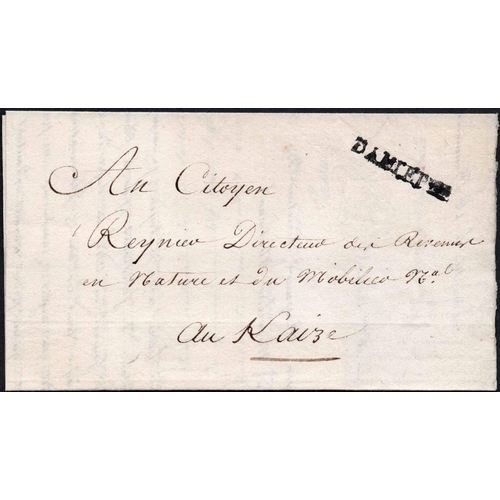 DAMIETTE
Au Citoyen
Reynier Directeur des Revenus
en Nature et du Mobilier N.al
au Kaire